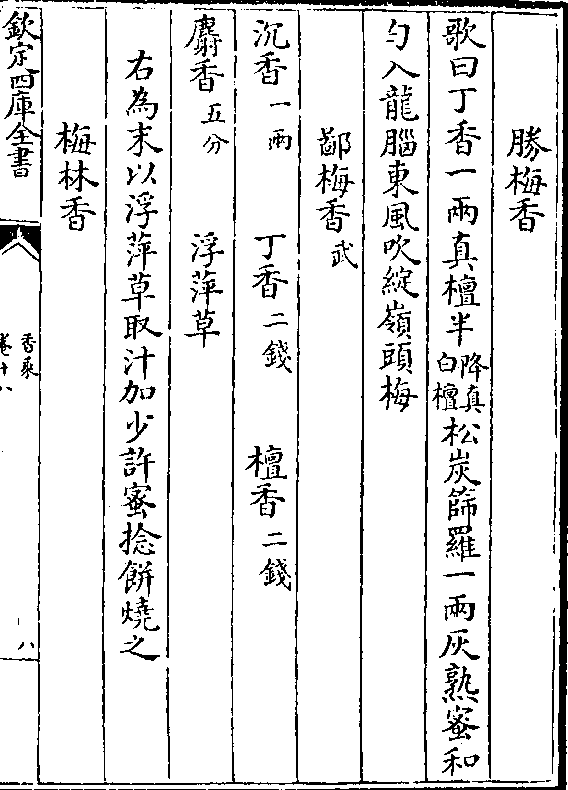 勝梅香
歌曰丁香一兩真檀半降真白檀松炭篩羅一兩灰熟蜜和
勻入龍腦東風吹綻嶺頭梅
鄙梅香武
沉香一兩 丁香二錢 檀香二錢
麝香五分 浮萍草
右為末以浮萍草取汁加少許蜜捻餅燒之
梅林香
欽定四庫全書
香乘
卷十八
八